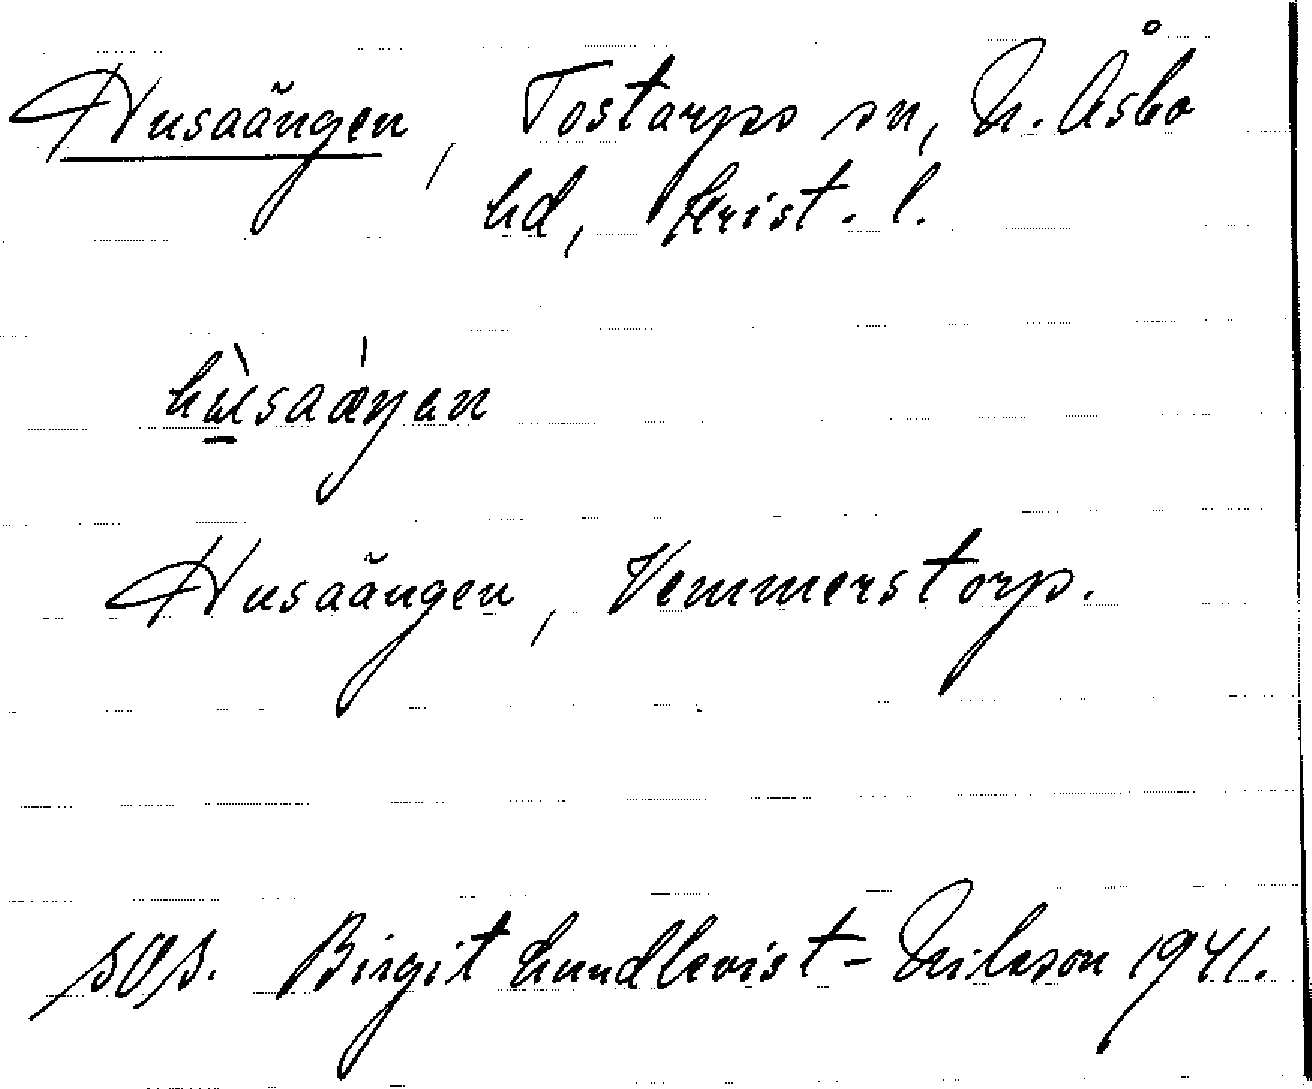 Husaängen, Tostarps sn, N. Åsbo
hd, Krist. l.
Husaängen, Vemmerstorp.
Birgit Lundkvist-Nilsson 1941.